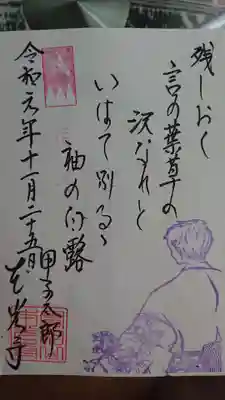 残しおく
言の葉草の
沢なれど
いはで別るゝ
袖の白露
令和元年十一月二十五日
甲子太郎
光寺